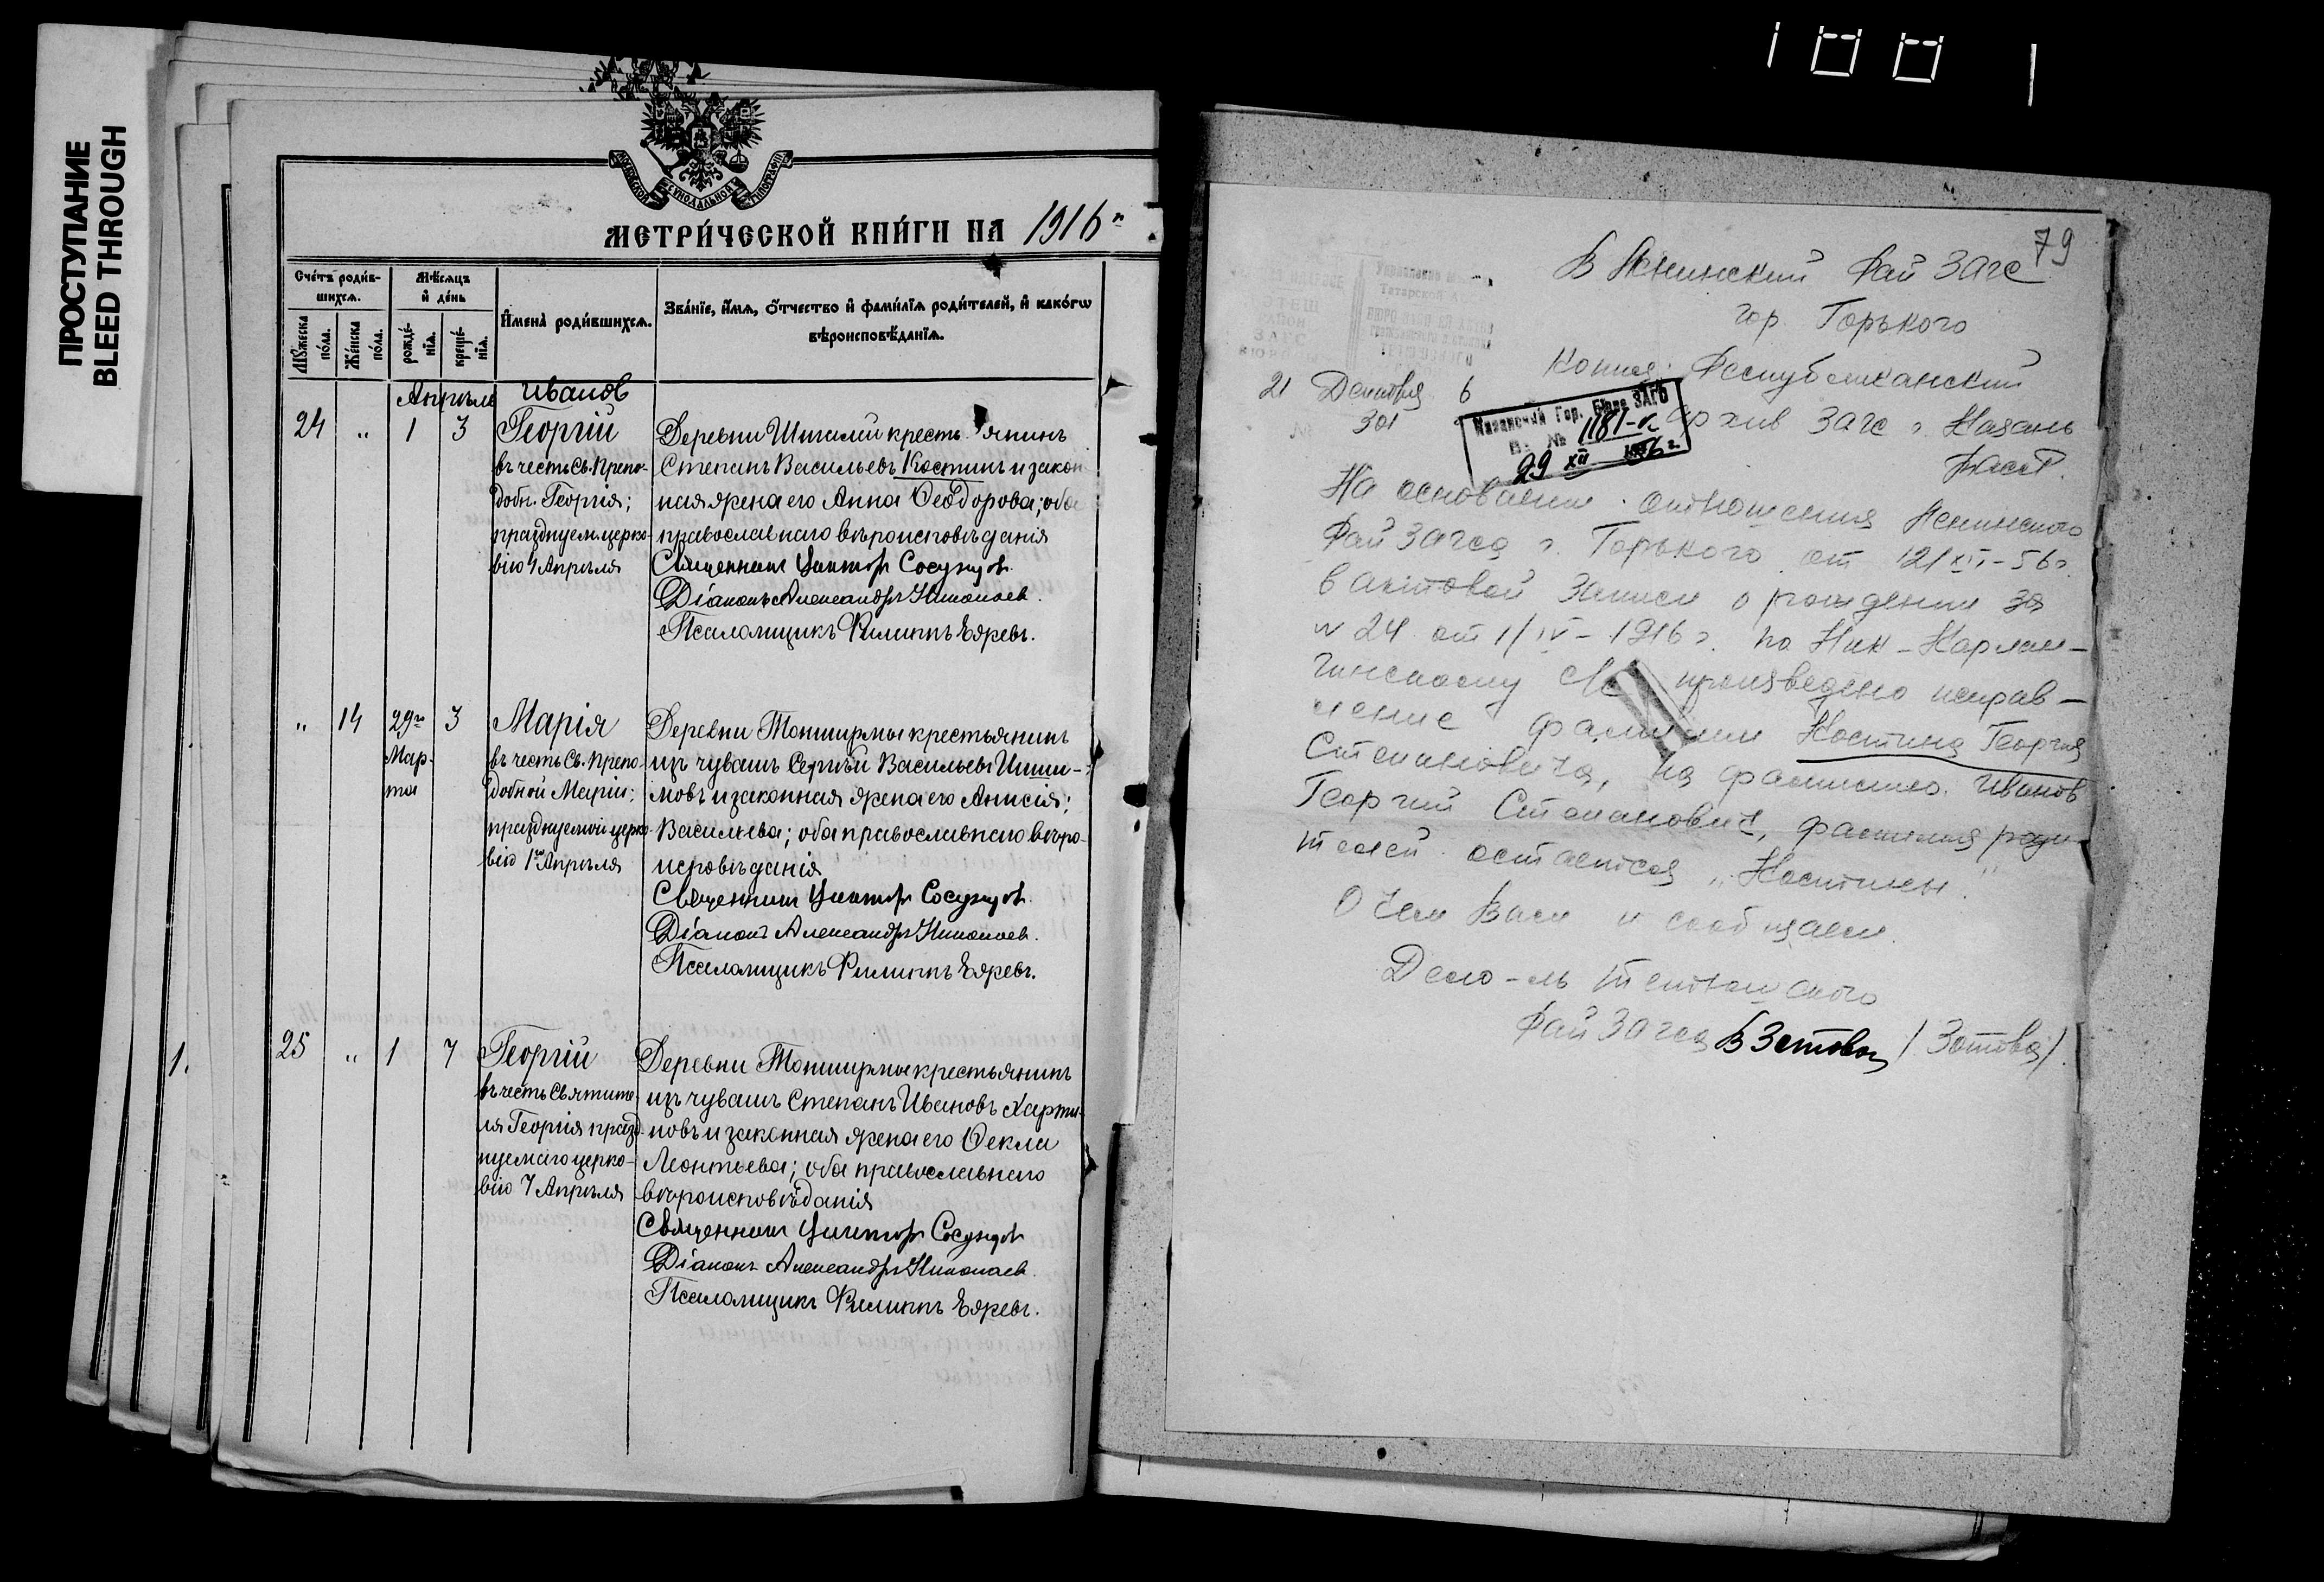 ПРОСТУПАНИЕ
BLEED THROUGH
МОСКОВСКОЙ СѴНОДАЛЬНОЙ ТІПОГРАФІИ
МЕТРИ́ЧЕСКОЙ КНИ́ГИ НА 1916 г
Сче́тъ роди́в-
шихсѧ.
Мѣ́сѧцъ
и҆ де́нь
Мꙋ́жеска
по́ла.
Же́нска
по́ла.
рожде́-
нїѧ.
креще́-
нїѧ.
И҆мена̀ роди́вшихсѧ.
Зва́нїе, и҆́мѧ, ѻ҆́тчество и҆ фами́лїѧ роди́телей, и҆ како́гѡ
вѣроисповѣ́данїѧ.
Апрѣль
Иванов
24 „ 1 3 Георгій
въ честь Св. Препо-
добн. Георгія;
празднуем. церко-
вію 4 Апрѣля
Деревни крестьянинъ
Степанъ Васильевъ Костинъ и закон
ная жена его Анна Ѳеодорова; оба
православнаго вѣроисповѣданія
Священник Виктор
Діаконъ Александръ Николаев.
Псаломщикъ Филиппъ
„ 14 29го 3
Мар-
та
Марія
въ честь Св. Препо-
добной Маріи;
празднуемой церко-
вію 1го Апрѣля
Деревни крестьянинъ
изъ чувашъ Сергѣй Васильевъ
мовъ и законная жена его Анисія
Васильева; оба православнаго вѣро-
исповѣданія
Священник Виктор
Діаконъ Александръ Николаев.
Псаломщикъ Филиппъ
1.
25 „ 1 7 Георгій
въ честь Святите-
ля Георгія празд-
нуемаго церко-
вію 7 Апрѣля
Деревни крестьянинъ
изъ чувашъ Степанъ Ивановъ
новъ и законная жена его Ѳекла
Леонтьева; оба православнаго
вѣроисповѣданія
Священник Виктор
Діаконъ Александръ Николаев.
Псаломщикъ Филиппъ
79
В Ленинский Рай ЗАГС
гор. Горького
Копия: Республиканский
архив ЗАГС г. Казань
21 Декабря 6
№ 301
Казанский Гор. Бюро ЗАГС
В. № 1181-к
29 XII 1956 г.
На основании отношения Ленинского
Рай ЗАГСа г. Горького от 12/XII-56 г.
в актовой записи о рождении за
№ 24 от 1/IV-1916 г. по Ник-
произведено исправ-
ление фамилии Костина Георгия
Степановича, на фамилию Иванов
Георгий Степанович, фамилия роди-
телей остаются „Костины."
О чем Вам и сообщаем.
Дело-ль Тетюшского
Рай ЗАГСа В Зотова / Зотова /.